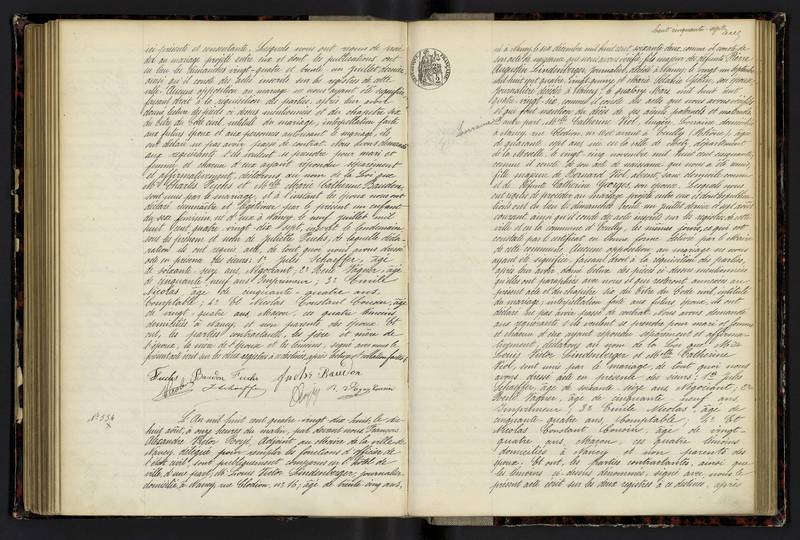 ici présente et consentante, Lesquels nous ont requis de procé-
der au mariage projeté entre eux et dont les publications ont
eu lieu les Dimanches vingt-quatre et trente un juillet dernier
ainsi qu'il conste des actes inscrits sur les registres de cette
ville. Aucune opposition au mariage ne nous ayant été signifiée
faisant droit à la réquisition des parties, après leur avoir
donné lecture des pièces ci-dessus mentionnées et du chapitre six
du titre du Code civil intitulé du mariage, interpellation faite
aux futurs époux et aux personnes autorisant le mariage, ils
ont déclaré ne pas avoir passé de contrat. Nous avons demandé
aux requérants s'ils veulent se prendre pour mari et
femme et chacun d'eux ayant répondu séparément
et affirmativement, déclarons au nom de la Loi que
Mr Charles Fuchs et Mlle Marie Catherine Baudon
sont unis par le mariage, et à l'instant les époux nous ont
déclaré reconnaître et légitimer par le présent un enfant
du sexe féminin né d'eux à Nancy le neuf juillet mil
huit cent quatre vingt dix sept, inscrit le lendemain
sous les prénoms et nom de Juliette Fuchs, de laquelle décla-
ration ils ont requis acte, de tout quoi nous avons dressé
acte en présence des sieurs: 1° Jules Schaeffer, âgé
de soixante seize ans, Négociant; 2° René Vagner, âgé
de cinquante neuf ans, Imprimeur; 3° Emile
Nicolas, âgé de cinquante quatre ans,
Comptable; 4° Et Nicolas Constant Cousin, âgé
de vingt-quatre ans, Maçon; ces quatre témoins
domiciliés à Nancy, et non parents des époux. Et
ont, les parties contractantes, les père et mère de
l'épouse, la mère de l'époux et les témoins, signé avec nous le
présent acte écrit sur les deux registres à ce destinés, après lecture
Fuchs Baudon Fuchs Baudon
J. Schaeffer
N° 554
L'An mil huit cent quatre-vingt-dix huit, le dix
huit août, à onze heures du matin, par devant nous François
Alexandre Victor Boyé, Adjoint au Maire de la ville de
Nancy, délégué pour remplir les fonctions d'officier de
l'état civil, sont publiquement comparus en l'hôtel de
ville, d'une part, Mr Louis Victor Lindenberger, journalier,
domicilié à Nancy, rue Clodion, n° 16; âgé de trente cinq ans,
cent cinquante-sept
né à Nancy le six décembre mil huit cent soixante deux, comme il conste de
son acte de naissance que nous avons vérifié, fils majeur des défunts Pierre
Augustin Lindenberger, journalier, décédé à Nancy, le vingt un septembre
mil huit cent quatre vingt quinze, et Marie, son épouse,
journalière, décédée à Nancy, le quatorze Mars mil huit cent
quatre vingt six, comme il conste des actes que nous avons vérifiés
et qui font mention du décès de ses aïeuls paternels et maternels,
D'autre part, Mlle Catherine Viol, lingère, Lorraine, domiciliée
à Nancy, rue Clodion, n° 16 et avant à Ecully (Rhône), âgée
de quarante sept ans, née en la ville de Morley, département
de la Moselle, le vingt cinq novembre mil huit cent cinquante,
comme il conste de son acte de naissance qui nous a été remis,
fille majeure de Bernard Viol, absent, sans domicile connu
et de défunte Catherine Georges, son épouse. Lesquels nous
ont requis de procéder au mariage projeté entre eux et dont les publica-
tions ont eu lieu les Dimanches trente un juillet dernier et sept août
courant, ainsi qu'il conste des actes inscrits sur les registres de cette
ville et en la commune d'Ecully, les mêmes jours, ce qui est
constaté par le certificat en bonne forme délivré par le Maire
de cette commune. Aucune opposition au mariage ne nous
ayant été signifiée, faisant droit à la réquisition des parties,
après leur avoir donné lecture des pièces ci-dessus mentionnées
qu'elles ont paraphées avec nous et qui resteront annexées au
présent acte et du chapitre six du titre du Code civil intitulé
du mariage, interpellation faite aux futurs époux, ils ont
déclaré ne pas avoir passé de contrat. Nous avons demandé
aux requérants s'ils veulent se prendre pour mari et femme
et chacun d'eux ayant répondu séparément et affirma-
tivement, déclarons au nom de la Loi que Mr
Louis Victor Lindenberger et Mlle Catherine
Viol, sont unis par le mariage, de tout quoi nous
avons dressé acte en présence des sieurs: 1° Jules
Schaeffer, âgé de soixante seize ans, Négociant; 2°
René Vagner, âgé de cinquante neuf ans,
Imprimeur; 3° Emile Nicolas, âgé de
cinquante-quatre ans, Comptable; 4° Et
Nicolas Constant Cousin, âgé de vingt-
quatre ans, Maçon, ces quatre témoins
domiciliés à Nancy et non parents des
époux. Et ont, les parties contractantes, ainsi que
les témoins ci-dessus dénommés, signé avec nous le
présent acte écrit sur les deux registres à ce destinés, après
Lorraine